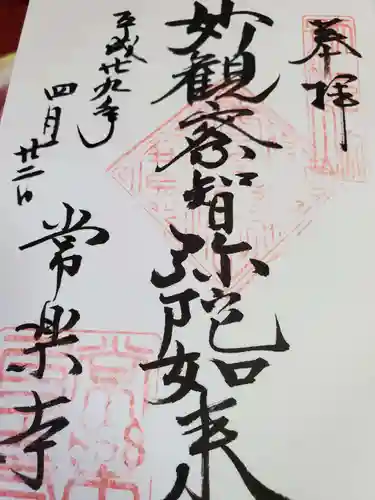 奉拝
妙観察智弥陀如来
平成廿九年
四月廿二日
常楽寺